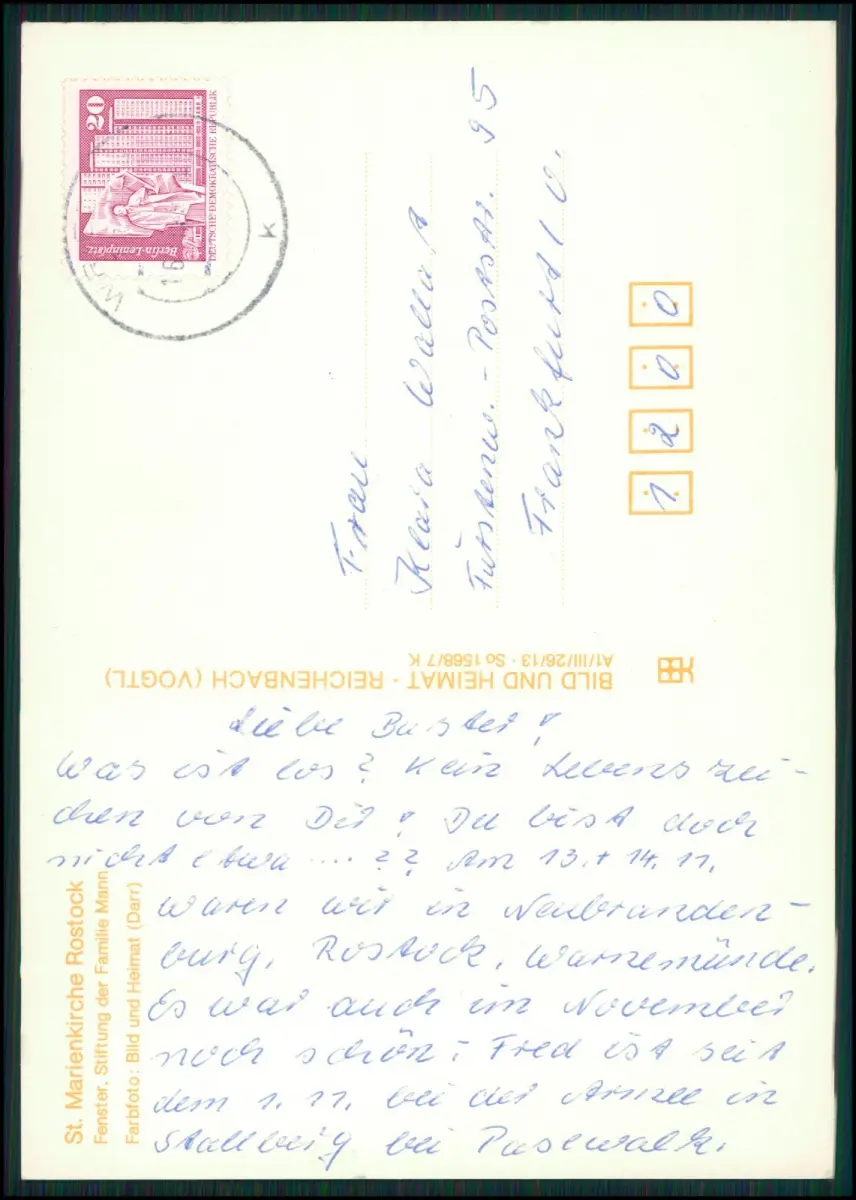 20
DEUTSCHE DEMOKRATISCHE REPUBLIK
Berlin-Leninplatz
16
k
Frau
Klara Wallat
Fürstenw.-Poststr. 95
Frankfurt / O.
1 2 0 0
BILD UND HEIMAT · REICHENBACH (VOGTL)
A1/III/26/13 · So 1568/7 K
Liebe Buster!
Was ist los? Kein Lebenszei-
chen von Dir! Du bist doch
nicht etwa .... ?? Am 13. + 14. 11.
waren wir in Neubranden-
burg, Rostock, Warnemünde.
Es war auch im November
noch schön. Fred ist seit
dem 1. 11. bei der Armee in
Stallberg bei Pasewalk.
St. Marienkirche Rostock
Fenster, Stiftung der Familie Mann
Farbfoto: Bild und Heimat (Darr)